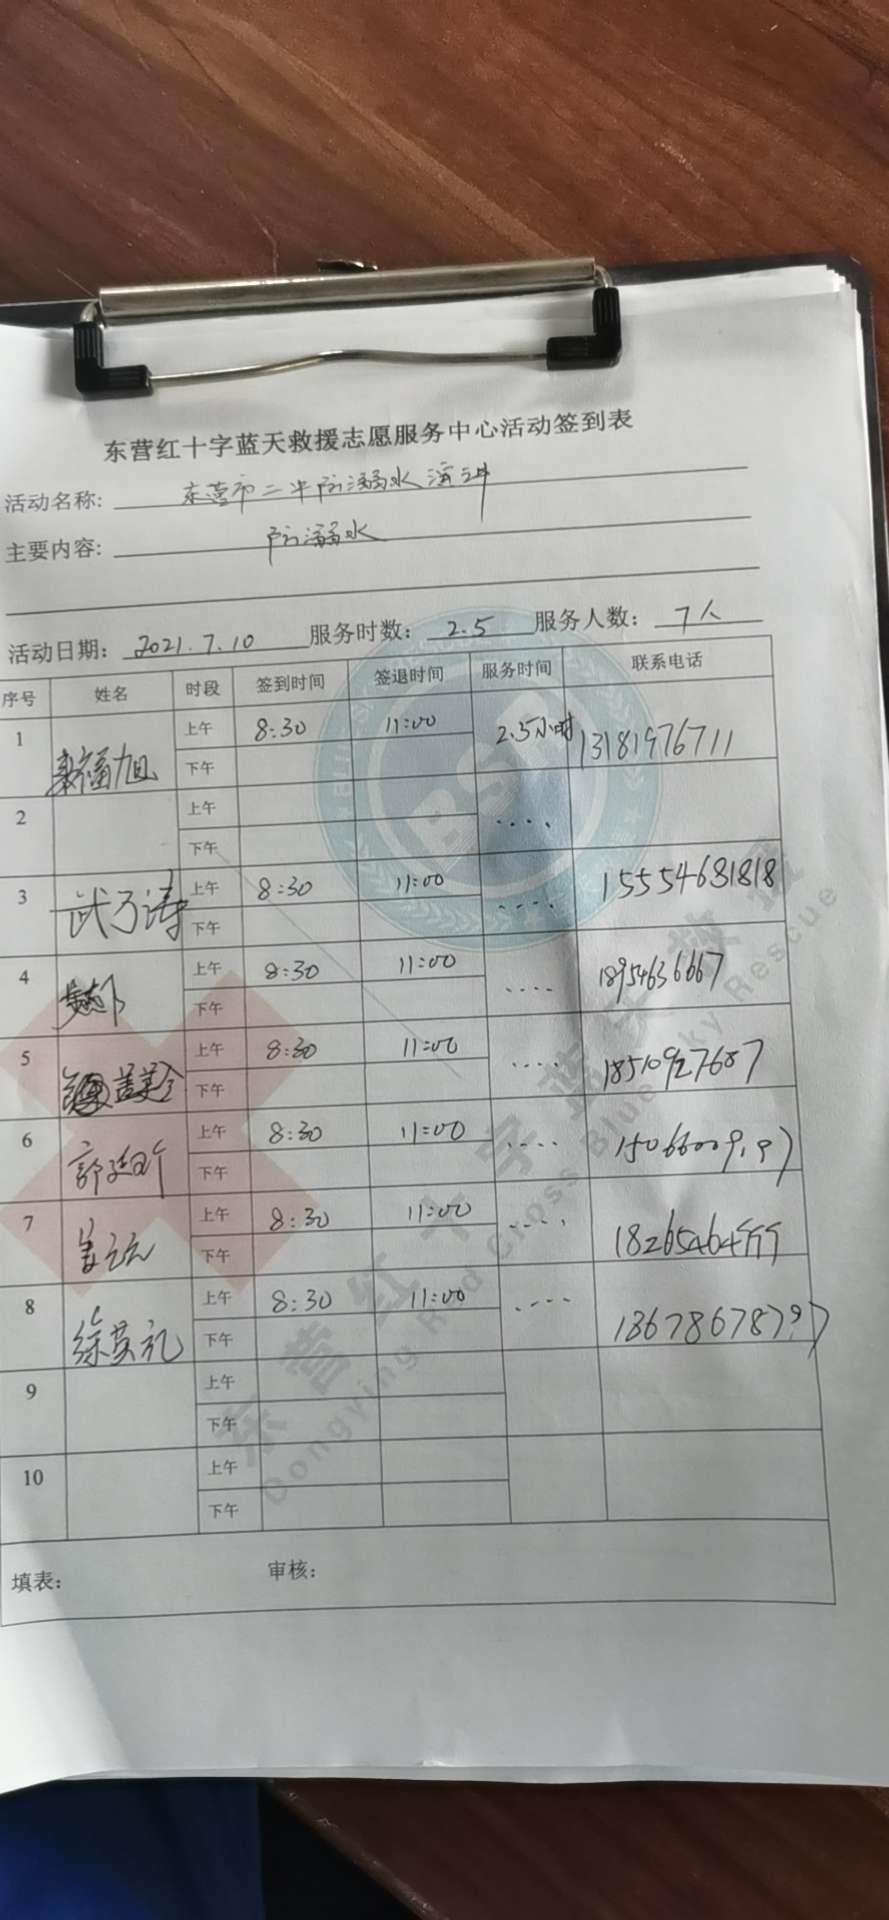 东营红十字蓝天救援志愿服务中心活动签到表
活动名称: 东营市二中防溺水演讲
主要内容: 防溺水
活动日期: 2021.7.10 服务时数: 2.5 服务人数: 7人
序号 姓名 时段 签到时间 签退时间 服务时间 联系电话
1 福旭 上午 8:30 11:00 2.5小时 13181976711
下午
2 上午
下午
3 武乃涛 上午 8:30 11:00 15554681818
下午
4 上午 8:30 11:00 18954636667
下午
5 盖美全 上午 8:30 11:00 18510927687
下午
6 郭延昕 上午 8:30 11:00
下午
7 上午 8:30 11:00
下午
8 徐英礼 上午 8:30 11:00 13678678797
下午
9 上午
下午
10 上午
下午
填表: 审核:
东营红十字蓝天救援
Dongying Red Cross Blue Sky Rescue
BSR